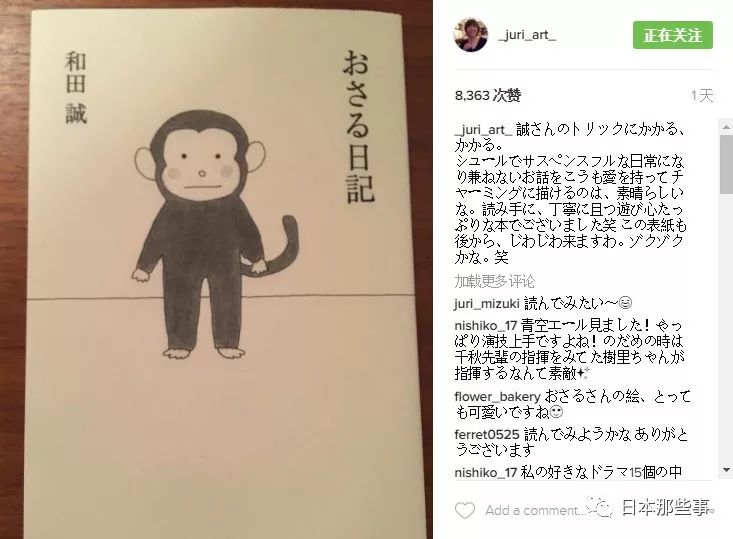 和田誠
おさる日記
_juri_art_
正在关注
8,363 次赞
1 天
_juri_art_ 誠さんのトリックにかかる、
かかる。
シュールでサスペンスフルな日常にな
り兼ねないお話をこうも愛を持ってチ
ャーミングに描けるのは、素晴らしい
な。読み手に、丁寧に且つ遊び心たっ
ぷりな本でございました笑 この表紙も
後から、じわじわ来ますわ。ゾクゾク
かな。笑
加载更多评论
juri_mizuki 読んでみたい〜😄
nishiko_17 青空エール見ました！やっ
ぱり演技上手ですよね！のだめの時は
千秋先輩の指揮をみてた樹里ちゃんが
指揮するなんて素敵✨
flower_bakery おさるさんの絵、とって
も可愛いですね🙂
ferret0525 読んでみようかな ありがと
うございます
nishiko_17 私の好きなドラマ15個の中
Add a comment...
日本那些事